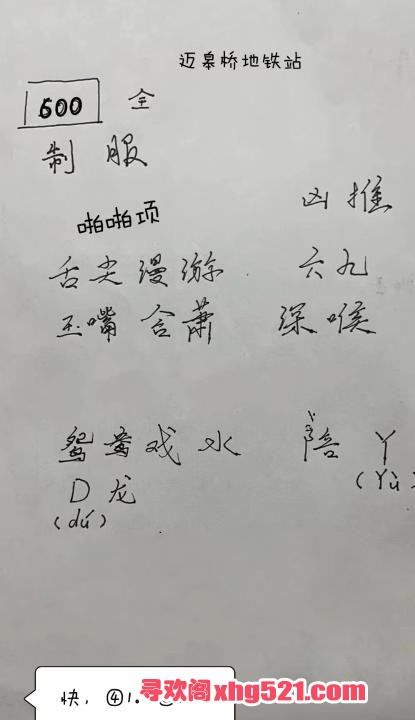 迈皋桥地铁站
600 全
制服
啪啪项 凶推
舌尖漫游 六九
玉嘴含萧 深喉
鸳鸯戏水 陪丫
D龙 (Yù)
(dú)
快，④1.
寻欢阁xhg521.com